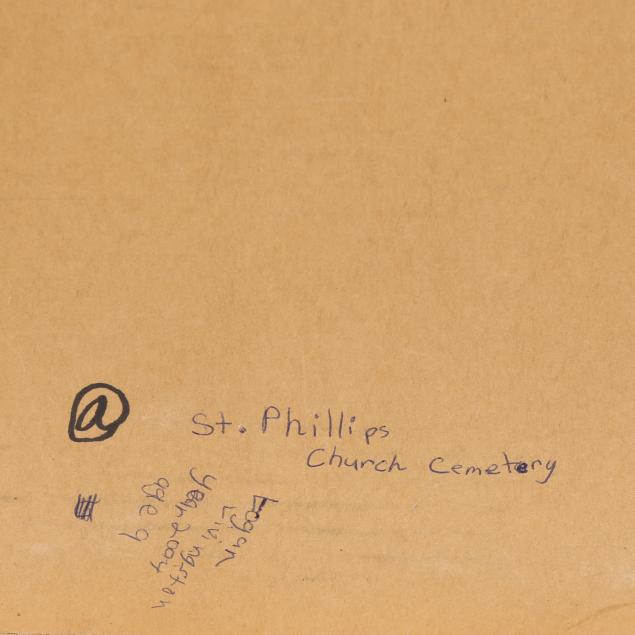 @
St. Phillips
Church Cemetery
Logan
Livingsten
year 2009
age 9